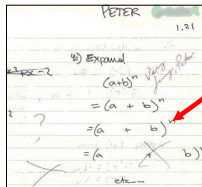 PETER
1.21
b) Expand
(a+b)ⁿ
Very funny, Peter.
= (a + b)ⁿ
?
= (a + b)ⁿ
= (a + b)ⁿ
etc...